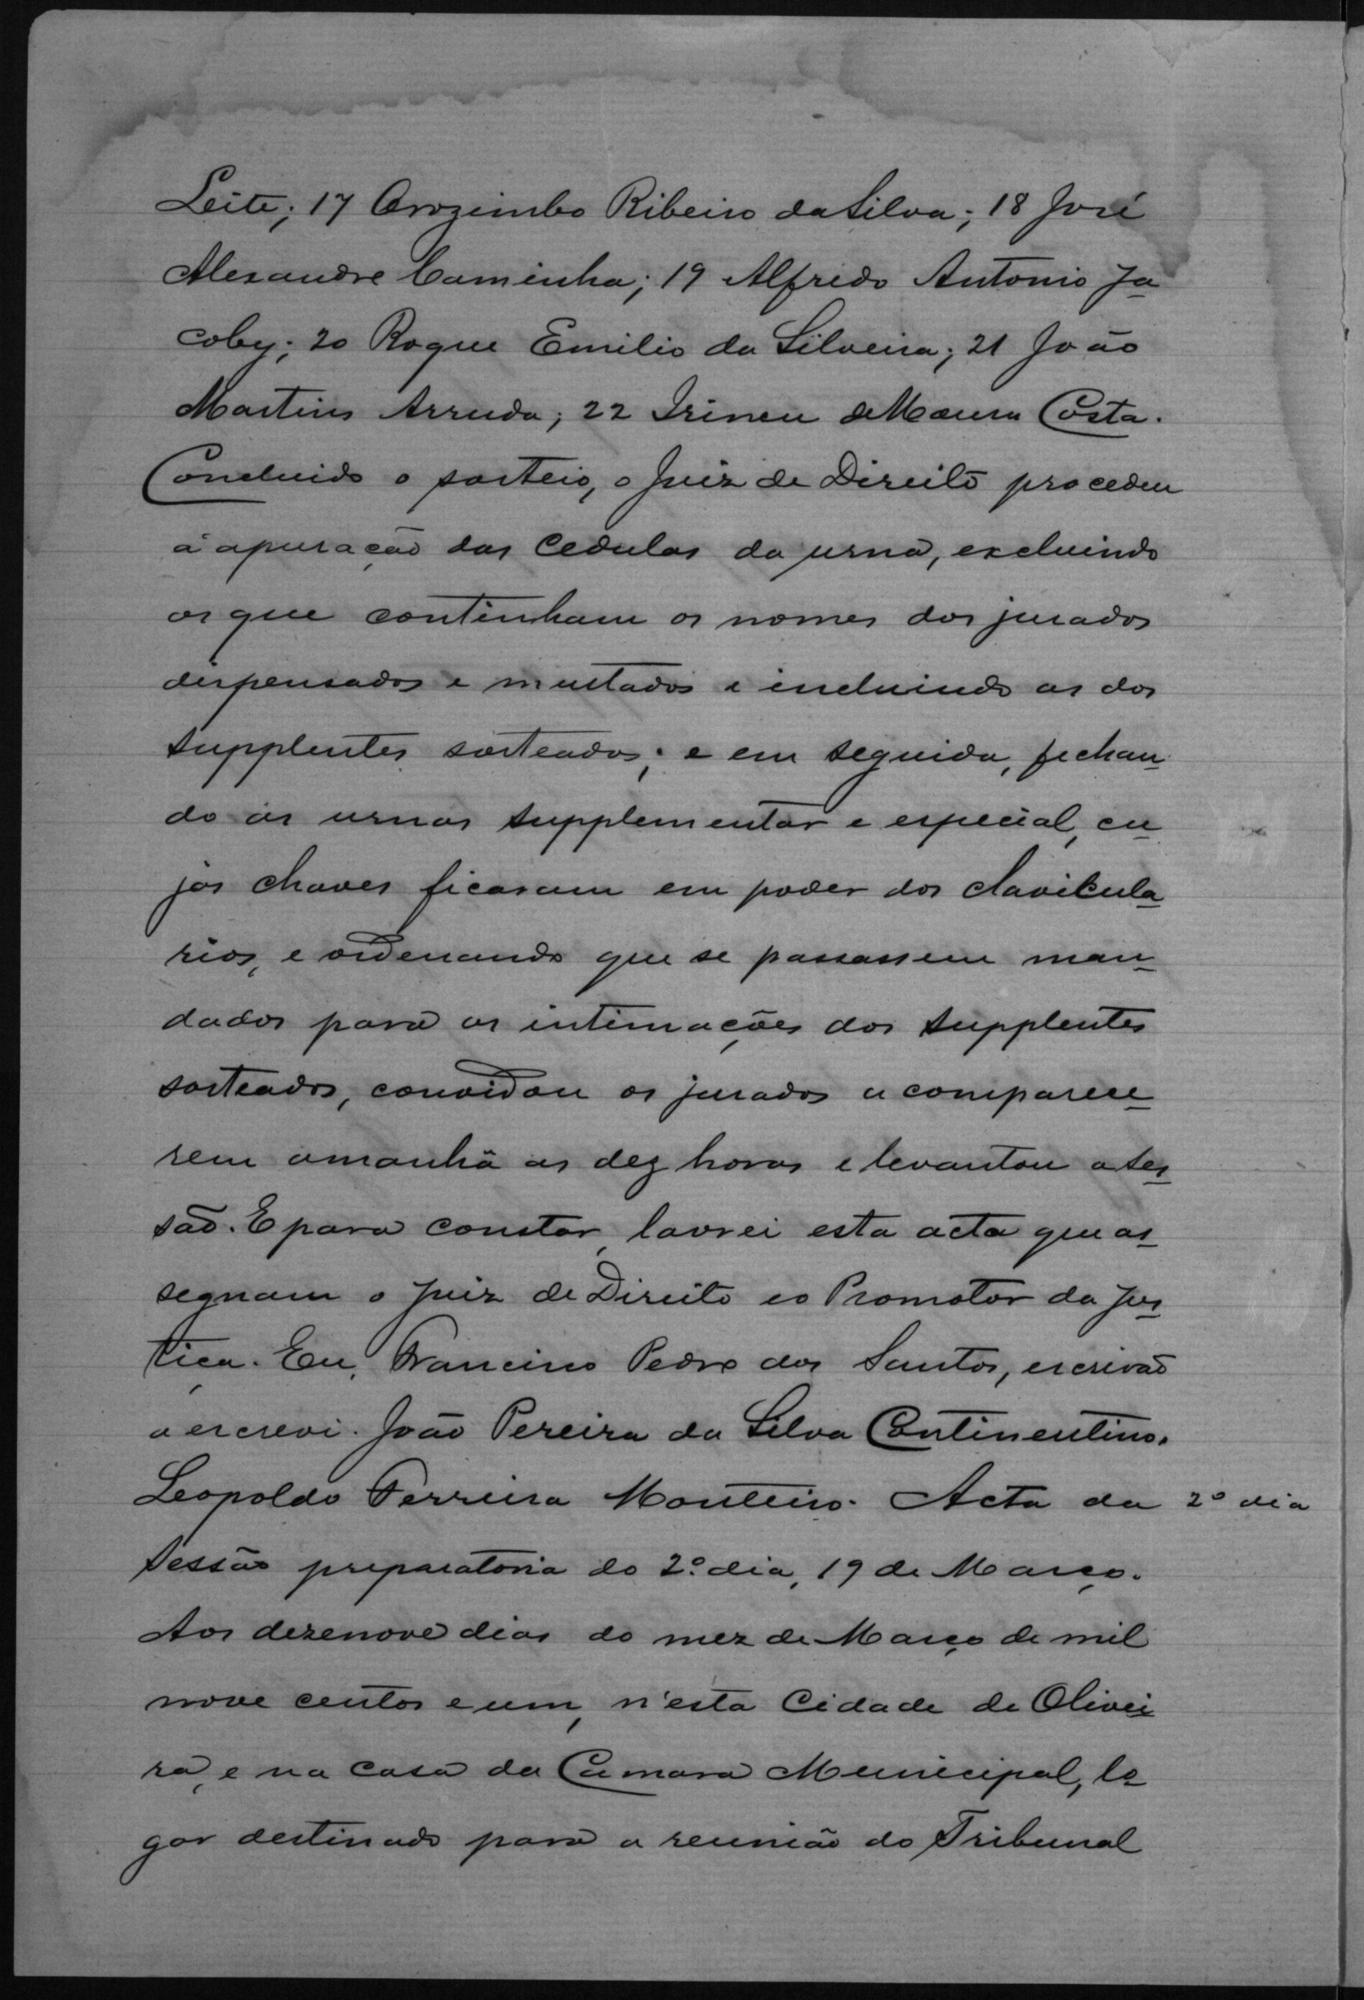 Leite; 17 Orozimbo Ribeiro da Silva; 18 José
Alexandre Caminha; 19 Alfredo Antonio Ja-
coby; 20 Roque Emilio da Silveira; 21 João
Martins Arruda; 22 Irineu de Moura Costa.
Concluido o sorteio, o Juiz de Direito procedeu
á apuração das cedulas da urna, excluindo
as que continham os nomes dos jurados
dispensados e multados e incluindo as dos
supplentes sorteados; e em seguida, fechan-
do as urnas supplementar e especial, cu-
jas chaves ficaram em poder dos clavicula-
rios, e ordenando que se passassem man-
dados para as intimações dos supplentes
sorteados, convidou os jurados a comparece-
rem amanhã as dez horas e levantou a ses-
são. E para constar, lavrei esta acta que as-
segnam o Juiz de Direito e o Promotor da Jus-
tiça. Eu, Francisco Pedro dos Santos, escrivão
a escrevi. João Pereira da Silva Continentino.
Leopoldo Ferreira Monteiro. Acta da 2º dia
sessão preparatoria do 2º dia, 19 de Março.
Aos dezenove dias do mez de Março de mil
nove centos e um, n'esta Cidade de Olivei-
ra, e na casa da Camara Municipal, lo-
gar destinado para a reunião do Tribunal